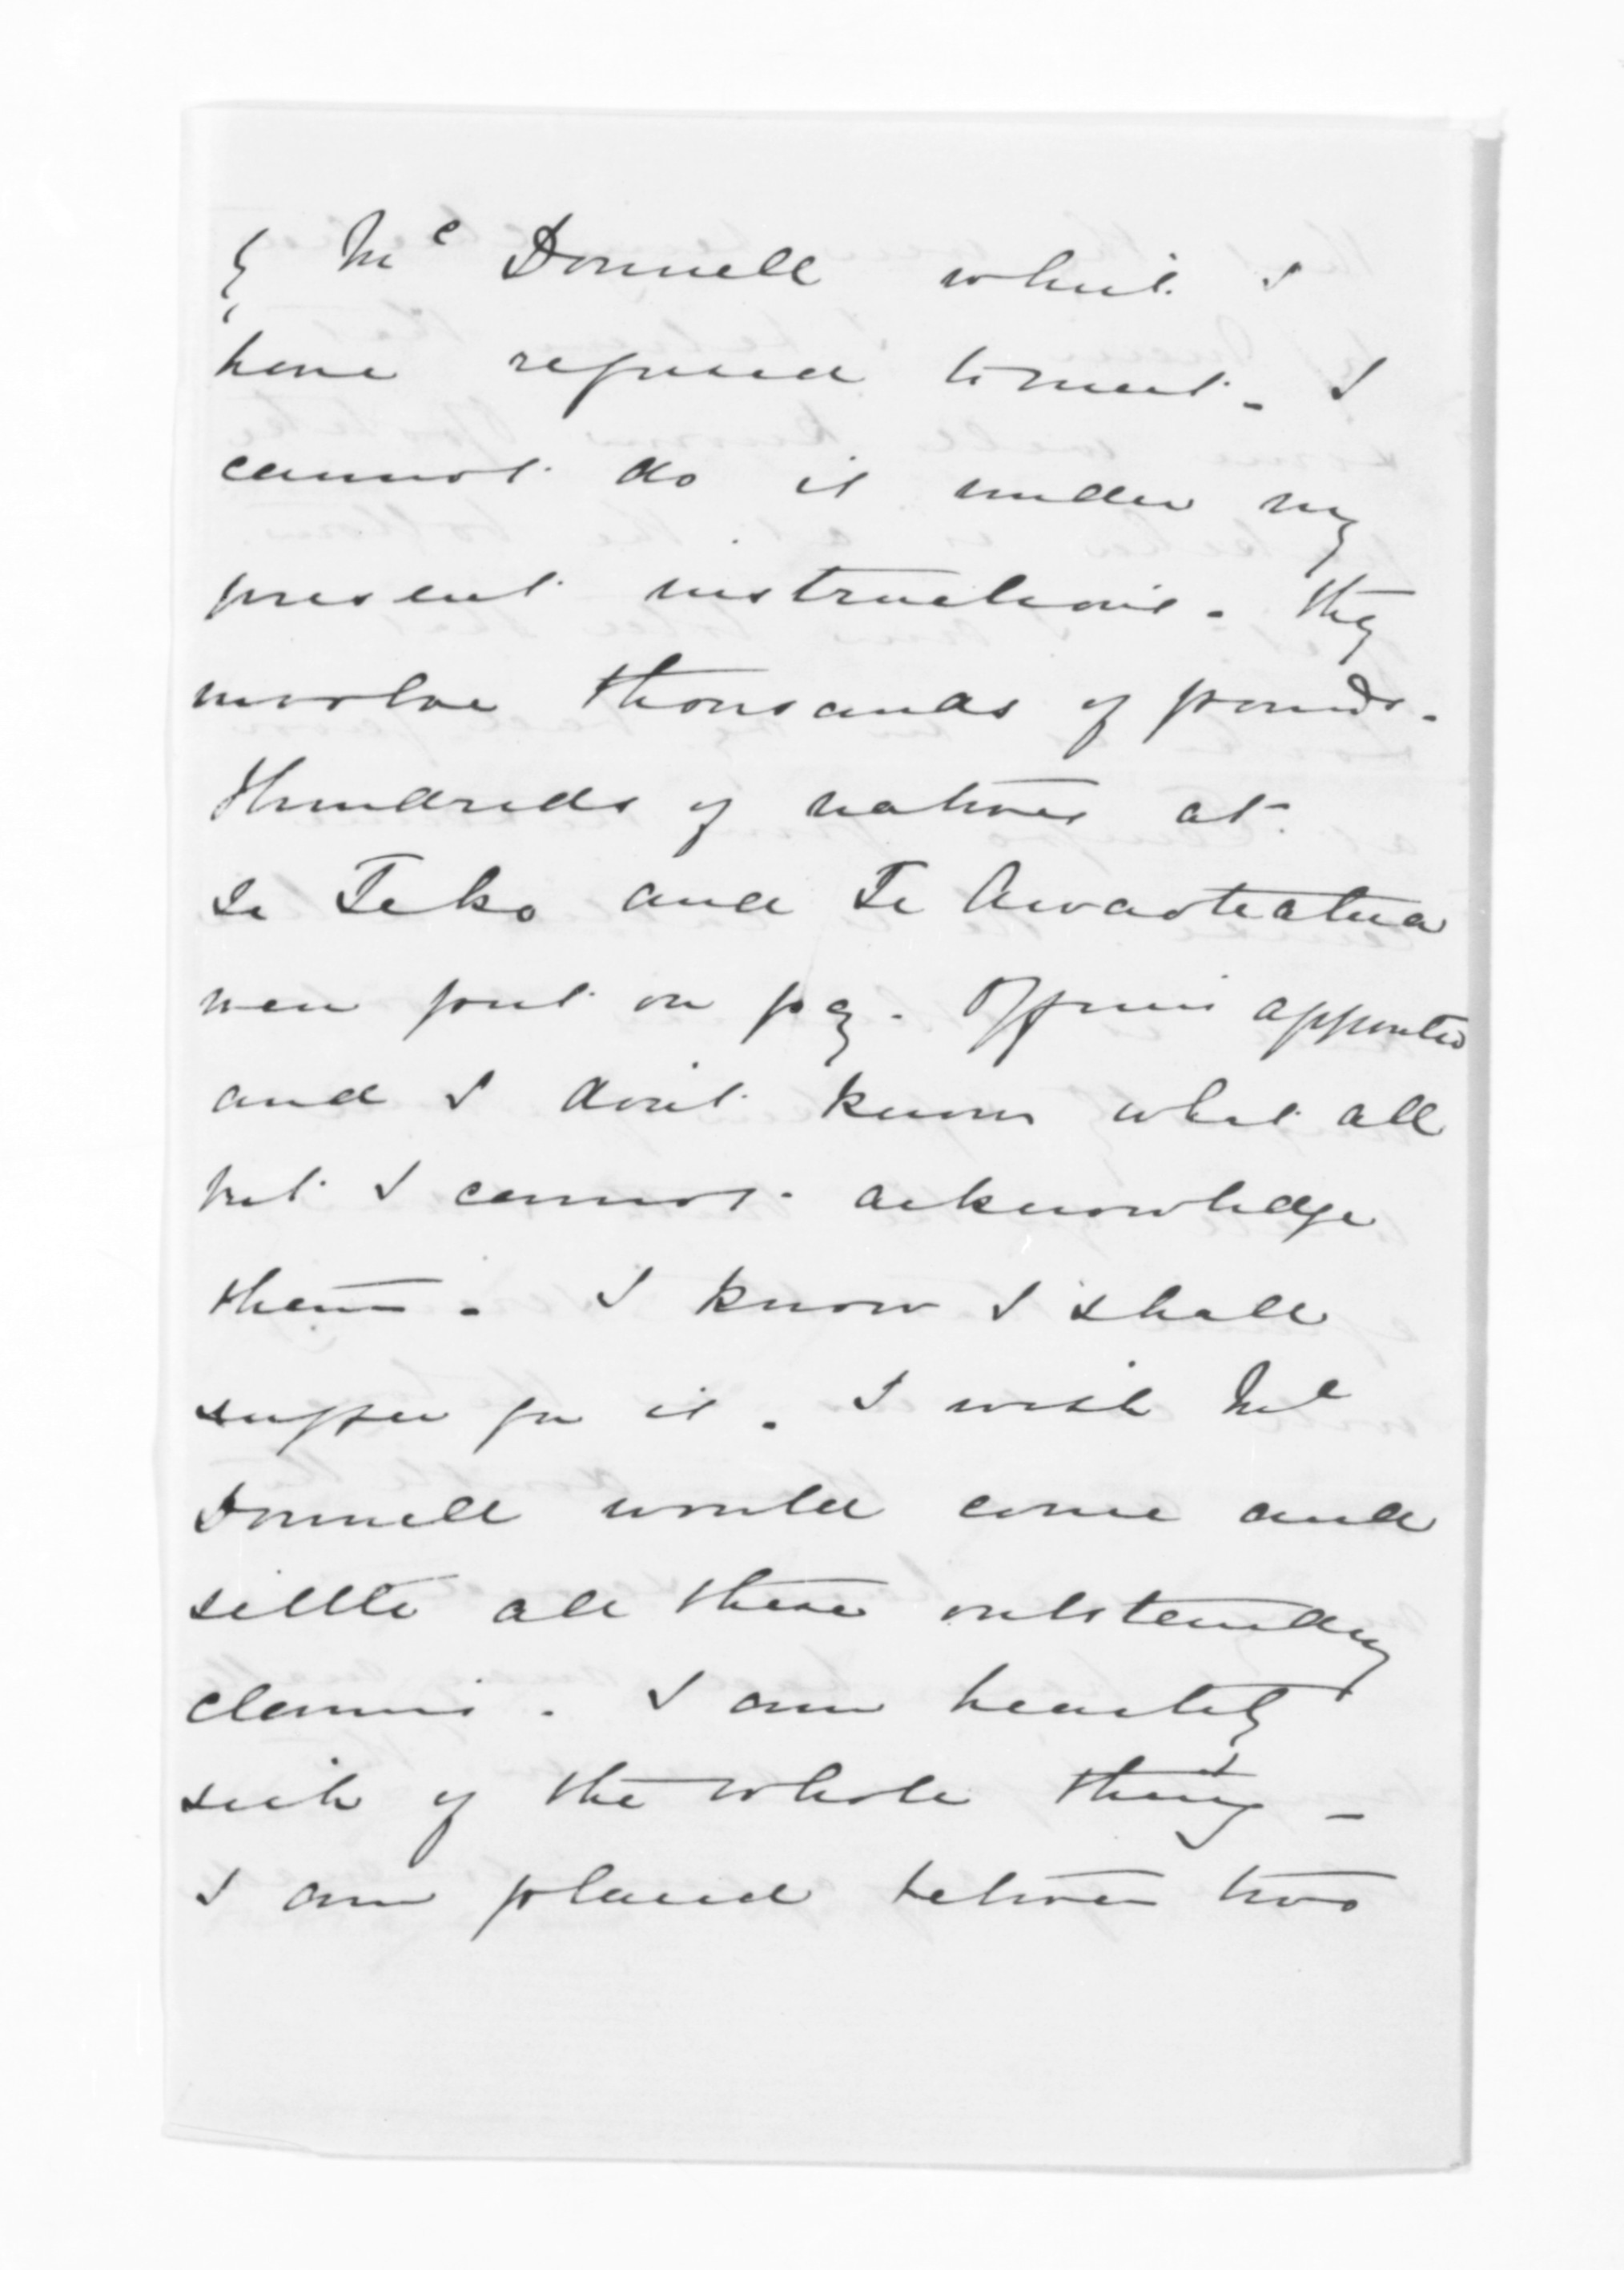 by McDonnell which I
have refused to meet. I
cannot do it under my
present instructions. They
involve thousands of pounds.
Hundreds of natives at
Te Teko and Te Awaoteatua
were put on pay. Officers appointed
and I don't know what all
but I cannot acknowledge
them. I know I shall
suffer for it. I wish Mc
Donnell would come and
settle all these outstanding
claims. I am heartily
sick of the whole thing -
I am placed between two